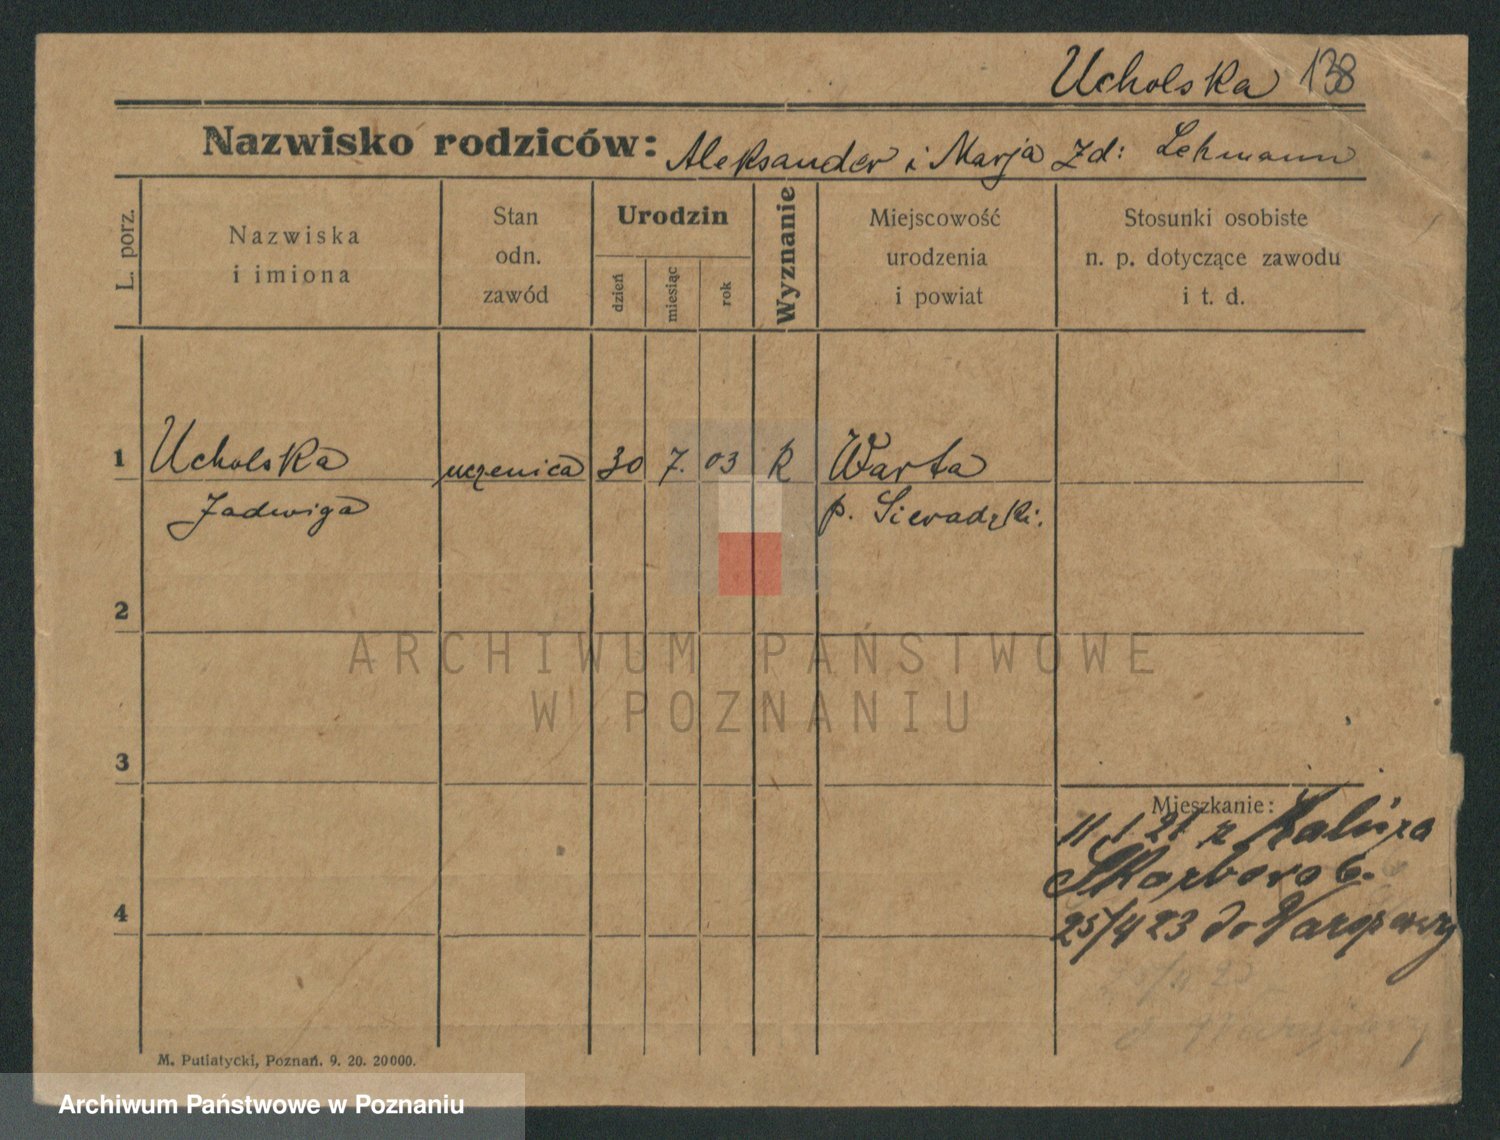 Ucholska 138
Nazwisko rodziców: Aleksander i Marja zd: Lehmann
L. porz.
Nazwiska
i imiona
Stan
odn.
zawód
Urodzin
dzień
miesiąc
rok
Wyznanie
Miejscowość
urodzenia
i powiat
Stosunki osobiste
n. p. dotyczące zawodu
i t. d.
1 Ucholska uczenica 30 7. 03 R Warta
Jadwiga p. Sieradzki.
2
ARCHIWUM PAŃSTWOWE
W POZNANIU
3
Mieszkanie:
11 1 21 z Kalisza
Skarbowa 6.
4
25/4 23 do Warszawy
M. Putiatycki, Poznań. 9. 20. 20000.
Archiwum Państwowe w Poznaniu